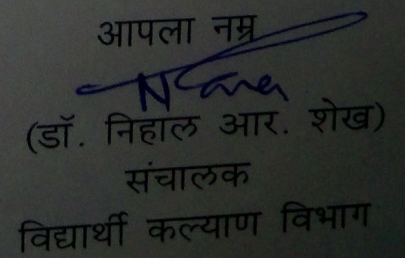 आपला नम्र
(डॉ. निहाल आर. शेख)
संचालक
विद्यार्थी कल्याण विभाग